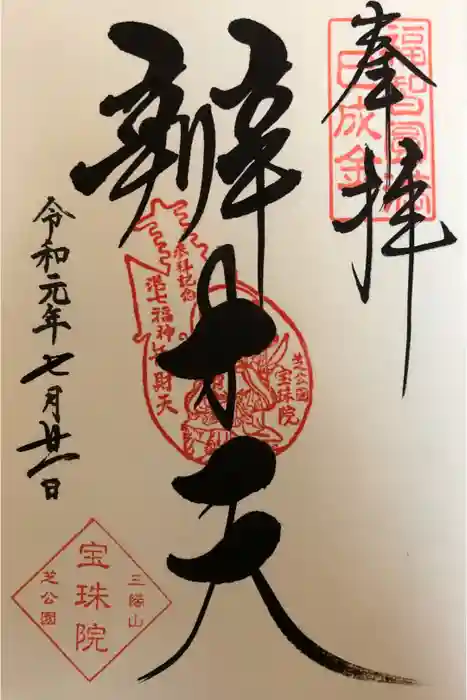 奉拝
福智円満
巳成金
辨才天
参拝記念
港七福神
弁財天
芝公園
宝珠院
令和元年七月廿一日
三縁山
宝珠院
芝公園